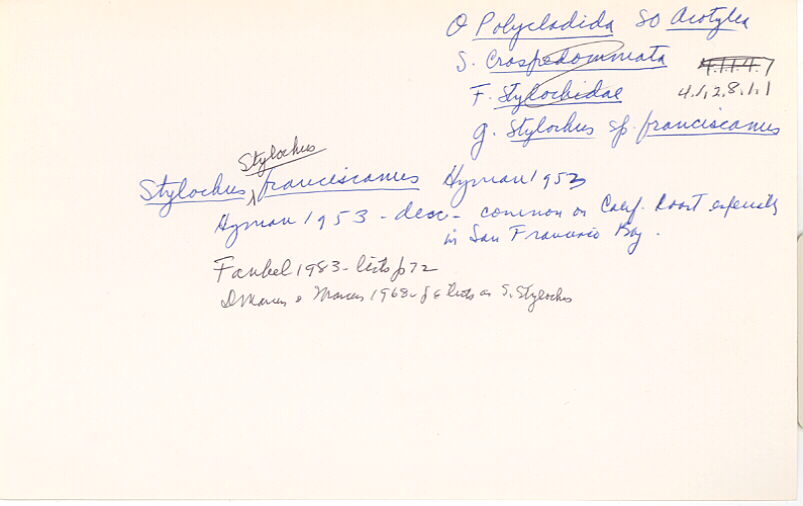 O Polycladida SO Acotylea
S. Craspedommata 4.1.1.4.7
F. Stylochidae 4.1.2.8.1.1
g. Stylochus sp. franciscanus
Stylochus
Stylochus franciscanus Hyman 1953
Hyman 1953 - desc - common on Calif. Coast especially
in San Francisco Bay.
Faubel 1983 - lists p72
Marcus & Marcus 1968 - lists as S. Stylochus